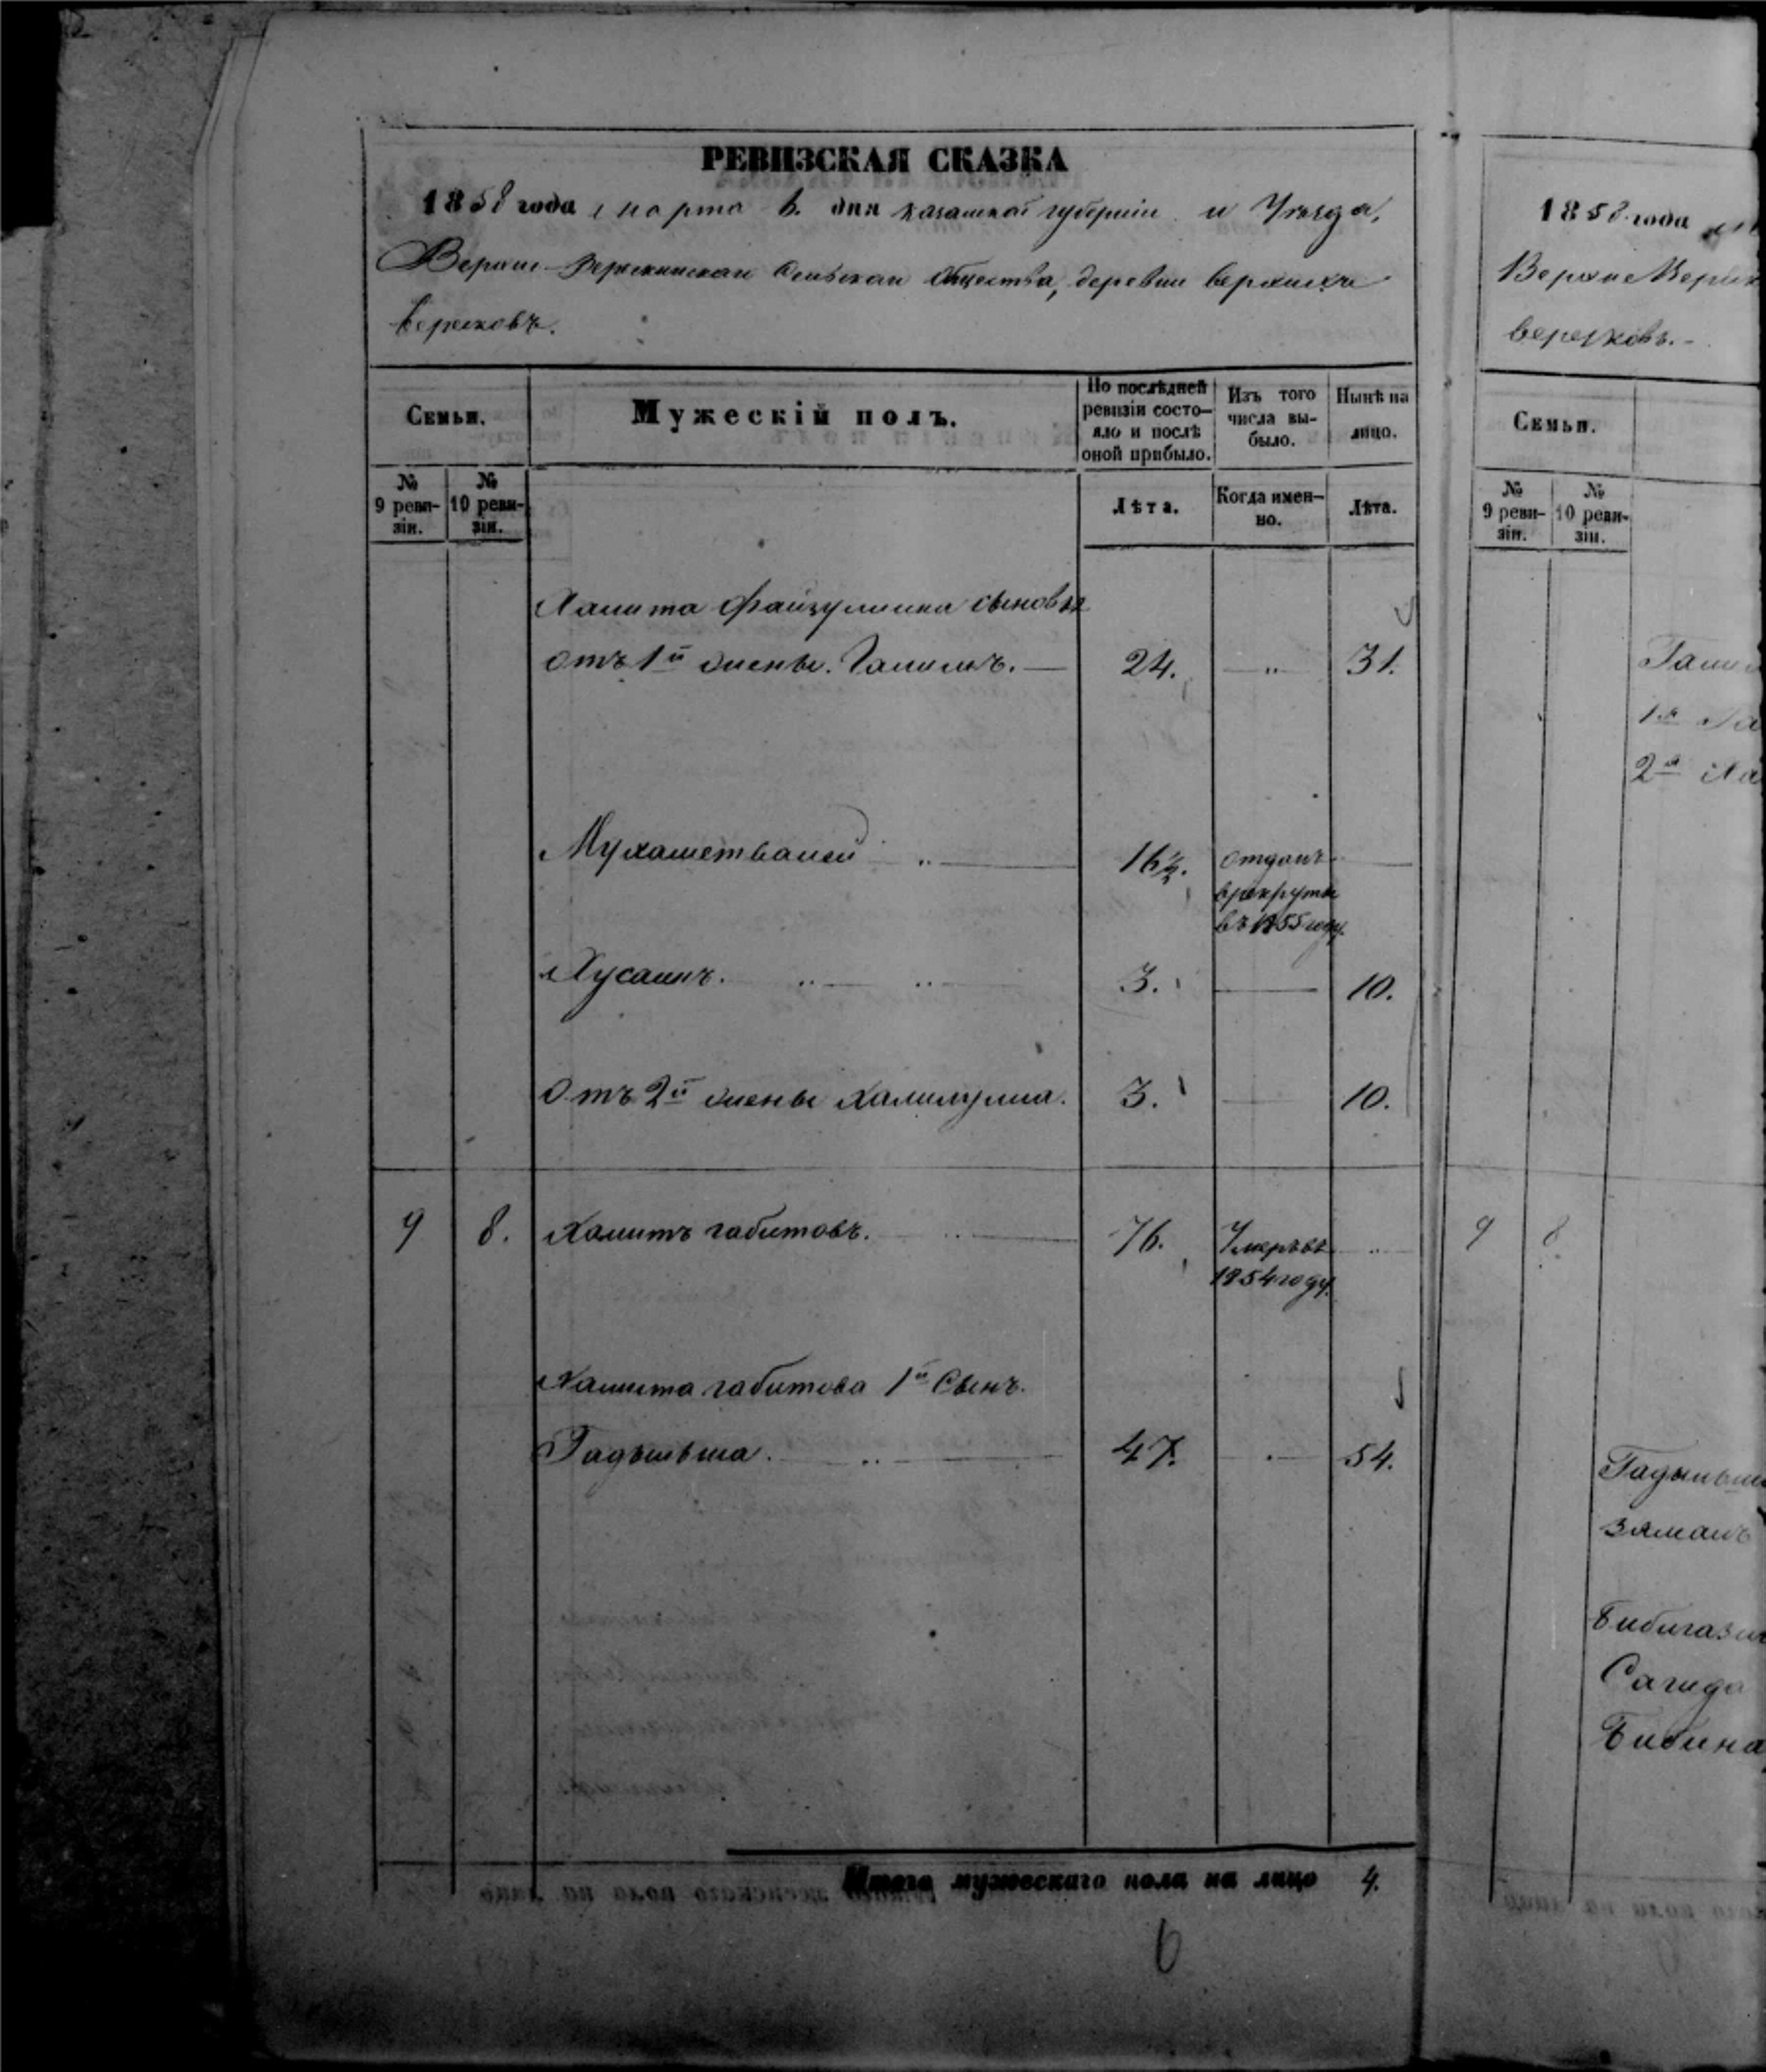 РЕВИЗСКАЯ СКАЗКА
1858 года марта 6. дня казанской губернiи и Уѣзда,
Верхне-Верескинскаи Сельскаи Общества, деревни верхнихъ
вересковъ.
Семьи.
Мужескiй полъ.
По послѣдней ревизiи состо-
яло и послѣ
оной прибыло.
Изъ того
числа вы-
было.
Нынѣ на
лицо.
№
9 реви-
зiи.
№
10 реви-
зiи.
Лѣта.
Когда имен-
но.
Лѣта.
Хамита Файзуллина сыновья
отъ 1й жены. Галимъ. 24. " 31.
Мухаметвалей " 16½. отданъ
врекруты
въ 1855 году.
Хусаинъ. " " 3. 10.
Отъ 2й жены Халиулла. 3. 10.
9 8. Хамитъ габитовъ. " 76. Умеръ въ "
1854 году.
Хамита габитова 1й Сынъ.
Гадыльша. " 47. " 54.
Итого мужескаго пола на лицо 4.
6
1858 года
вересковъ.-
Семьи.
№
9 реви-
зiи.
№
10 реви-
зiи.
1я
2я
9 8.
зяманъ
Сагида